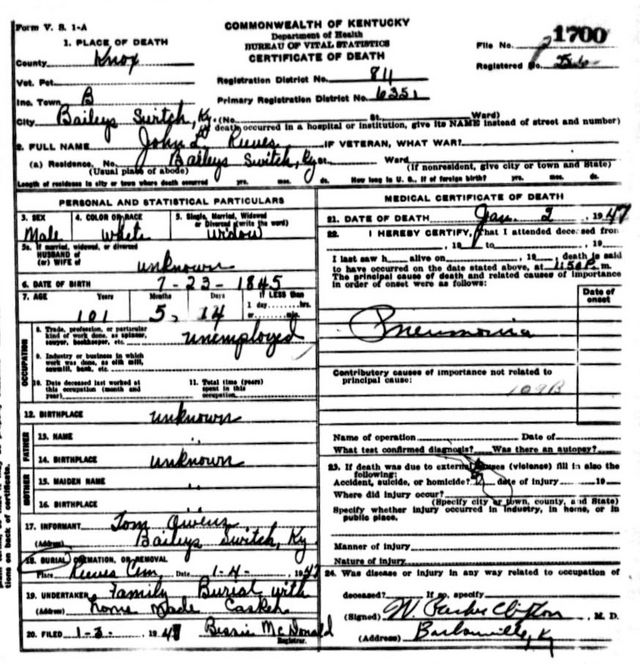 Form V. S. 1-A
COMMONWEALTH OF KENTUCKY
Department of Health
BUREAU OF VITAL STATISTICS
CERTIFICATE OF DEATH
File No. 1700
Registered
1. PLACE OF DEATH
County Knox
Vot. Pct.
Inc. Town B
City Baileys Switch, Ky. (No. St. Ward)
Registration District No. 811
Primary Registration District No. 6351
(If death occurred in a hospital or institution, give its NAME instead of street and number)
2. FULL NAME John L Reeves IF VETERAN, WHAT WAR?
(a) Residence. No. Baileys Switch, Ky Ward
(Usual place of abode) (If nonresident, give city or town and State)
Length of residence in city or town where death occurred yrs. mos. ds. How long in U. S., if of foreign birth? yrs. mos. ds.
PERSONAL AND STATISTICAL PARTICULARS
3. SEX Male
4. COLOR OR RACE White
5. Single, Married, Widowed or Divorced (write the word) Widow
5a. If married, widowed, or divorced
HUSBAND of
(or) WIFE of unknown
6. DATE OF BIRTH 7-23-1845
7. AGE Years Months Days If LESS than
101 5, 14 1 day hrs.
or min.
OCCUPATION
8. Trade, profession, or particular kind of work done, as spinner, sawyer, bookkeeper, etc. unemployed
9. Industry or business in which work was done, as silk mill, sawmill, bank, etc.
10. Date deceased last worked at this occupation (month and year)
11. Total time (years) spent in this occupation
12. BIRTHPLACE unknown
FATHER
13. NAME "
14. BIRTHPLACE unknown
MOTHER
15. MAIDEN NAME "
16. BIRTHPLACE "
17. INFORMANT Tom Owens
(Address) Baileys Switch, Ky
18. BURIAL, CREMATION, OR REMOVAL
Place Reeves Cem Date 1-4- 1947
19. UNDERTAKER Family Burial with
(Address) home made Casket
20. FILED 1-3- 1947 Bessie McDonald
Registrar.
MEDICAL CERTIFICATE OF DEATH
21. DATE OF DEATH Jan. 2, 1947
22. I HEREBY CERTIFY, that I attended deceased from
, 19 to , 19
I last saw h alive on , 19 , death is said
to have occurred on the date stated above, at m.
The principal cause of death and related causes of importance
in order of onset were as follows:
Date of onset
Pneumonia
Contributory causes of importance not related to
principal cause:
109B
Name of operation Date of
What test confirmed diagnosis? Was there an autopsy?
23. If death was due to external causes (violence) fill in also the
following:
Accident, suicide, or homicide? date of injury 19
Where did injury occur?
(Specify city or town, county, and State)
Specify whether injury occurred in industry, in home, or in
public place.
Manner of injury
Nature of injury
24. Was disease or injury in any way related to occupation of
deceased? If so, specify
(Signed) W. Parker Clifton M. D.
(Address) Barbourville, Ky